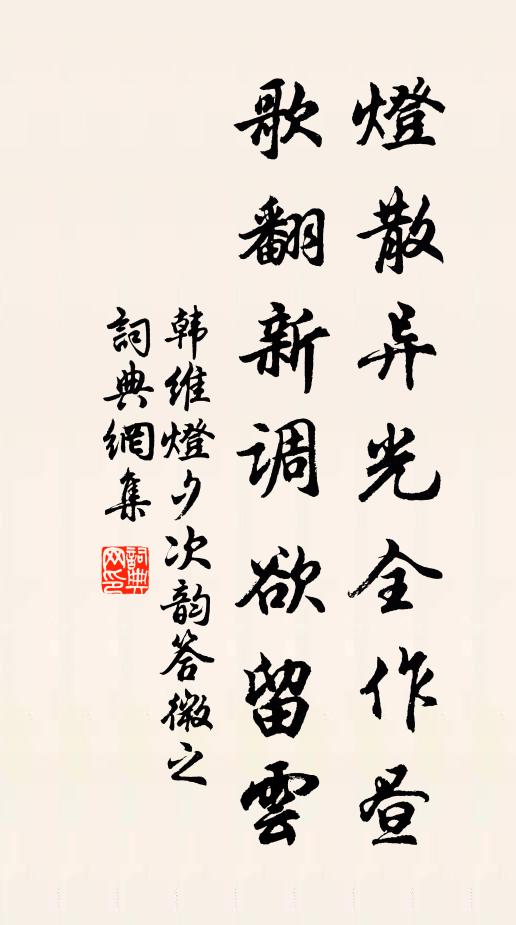 燈散异光全作昼
歌翻新调欲留雲
韩维燈夕次韵答微之
詞典網集
詞典网印